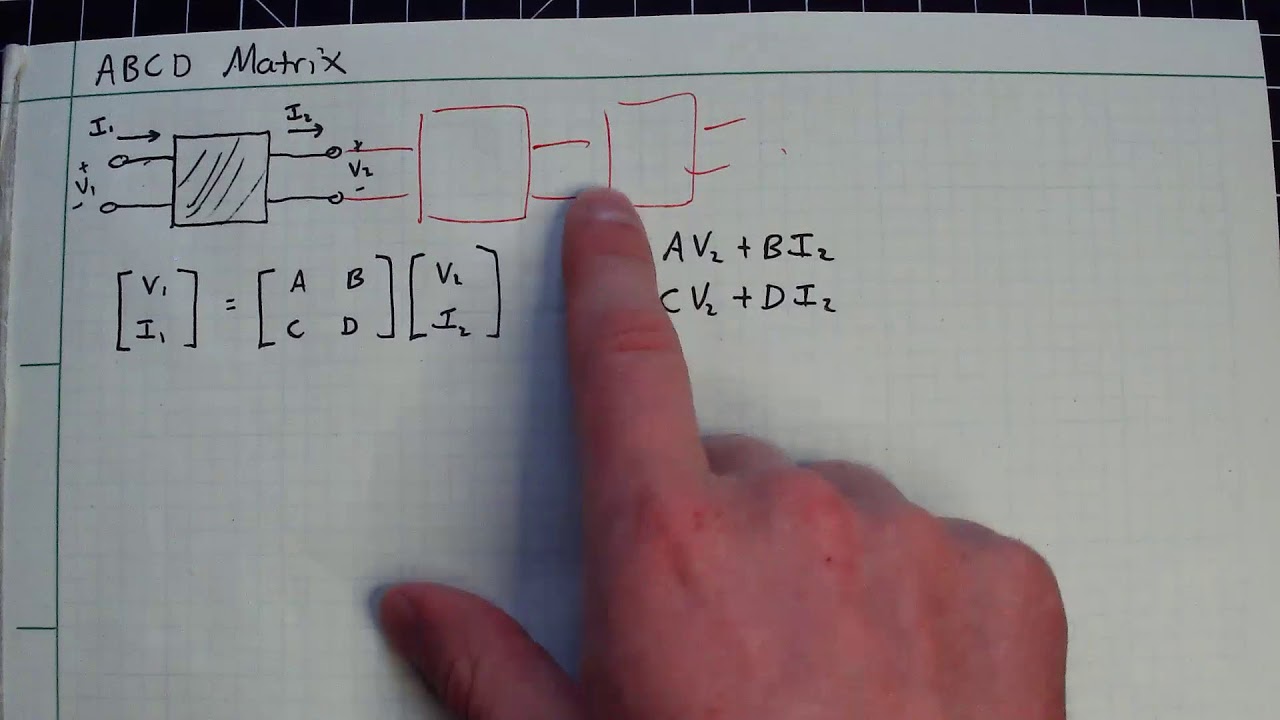 ABCD Matrix
I₁ → I₂ →
+ V₁ - + V₂ -
[V₁ I₁] = [A B C D] [V₂ I₂]
AV₂ + BI₂
CV₂ + DI₂